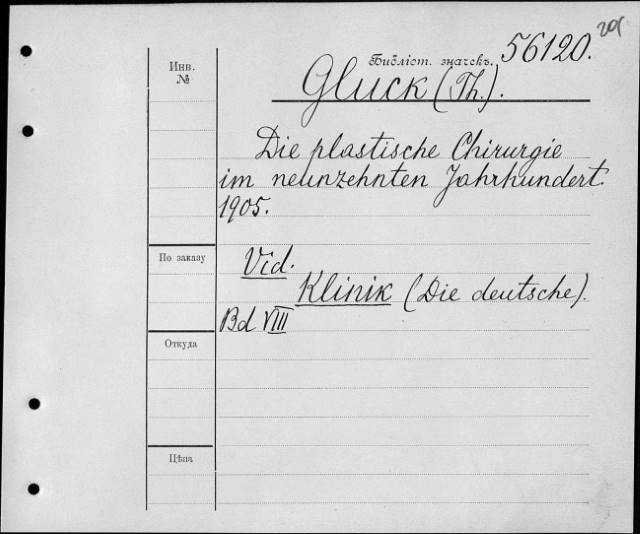 Инв.
№
Библіот. значекъ.
56120.
Gluck (Th.).
Die plastische Chirurgie
im neunzehnten Jahrhundert.
1905.
По заказу
Vid.
Klinik (Die deutsche).
Bd VIII
Откуда
Цѣна